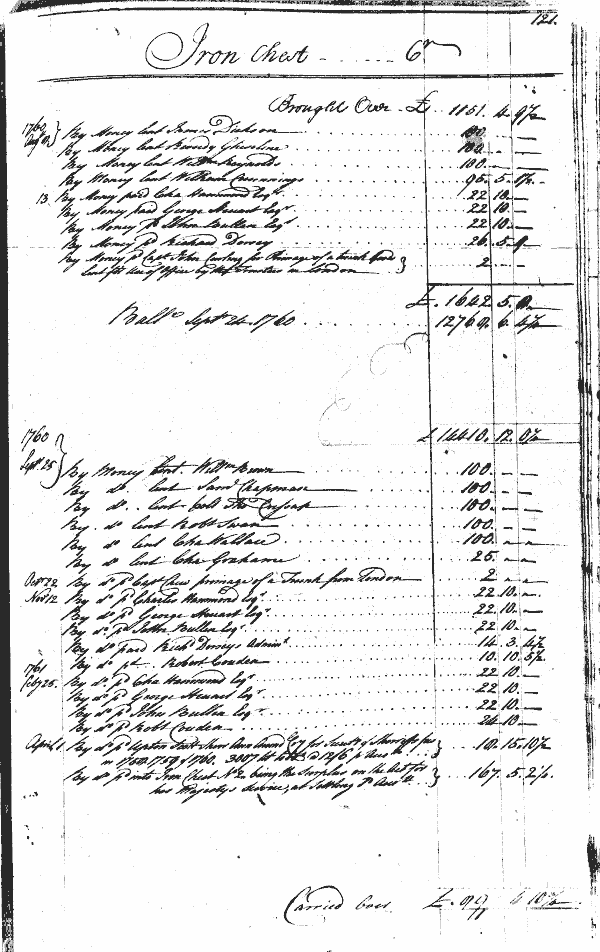 121.
Iron Chest ...... Cr
Brought Over - £ 1151. 4. 9½
1760 By Money lent James Dickson 100. — —
By Money lent 100. — —
By Money lent Willm Reynolds 100. — —
By Money lent William 96. 5. 1½
13. By Money paid Cha Hammond Esqr 22 10 —
By Money paid George Steuart Esqr 22 10 —
By Money pd John Bullen Esqr 22 10 —
By Money pd Richard Dorsey 26. 5. 9
By Money pd Capt John for Primage of a trunk
lent for use of Office by the Trustees in London 2 — —
£. 1642. 5. 8
Ballce Septr 24. 1760 12768. 6. 4½
£ 14410. 12. 0½
1760
Septr 25 By Money lent Willm Brown 100. — —
By do lent Saml Chapman 100. — —
By do lent Colo Tho Cresap 100. — —
By do lent Robt Swan 100. — —
By do lent Cha Wallace 100. — —
By do lent Cha Grahame 25. — —
Octr 22 By do pd Capt primage of a Trunk from London 2 — —
Novr 12 By do pd Charles Hammond Esqr 22 10. —
By do pd George Steuart Esqr 22 10. —
By do pd John Bullen Esqr 22 10 —
By do paid Richd Dorseys Admr 14. 3. 4½
By do pd Robert Couden 10. 10. 5½
1761
Feby 25. By do pd Cha Hammond Esqr 22 10 —
By do pd George Steuart Esqr 22 10 —
By do pd John Bullen Esqr 22 10 —
By do pd Robt Couden 24 10 —
April 1 By do pd Upton Scott Ann Arundl Coty for of Sheriffs
in 1758 1759 & 1760. 3007 lb tobo @ 12/6 p 18. 15. 10½
By do pd into Iron Chest No 2 being the Surplus on the Act for
his Majestys Service, at Settling 167. 5. 2½
Carried Over £.